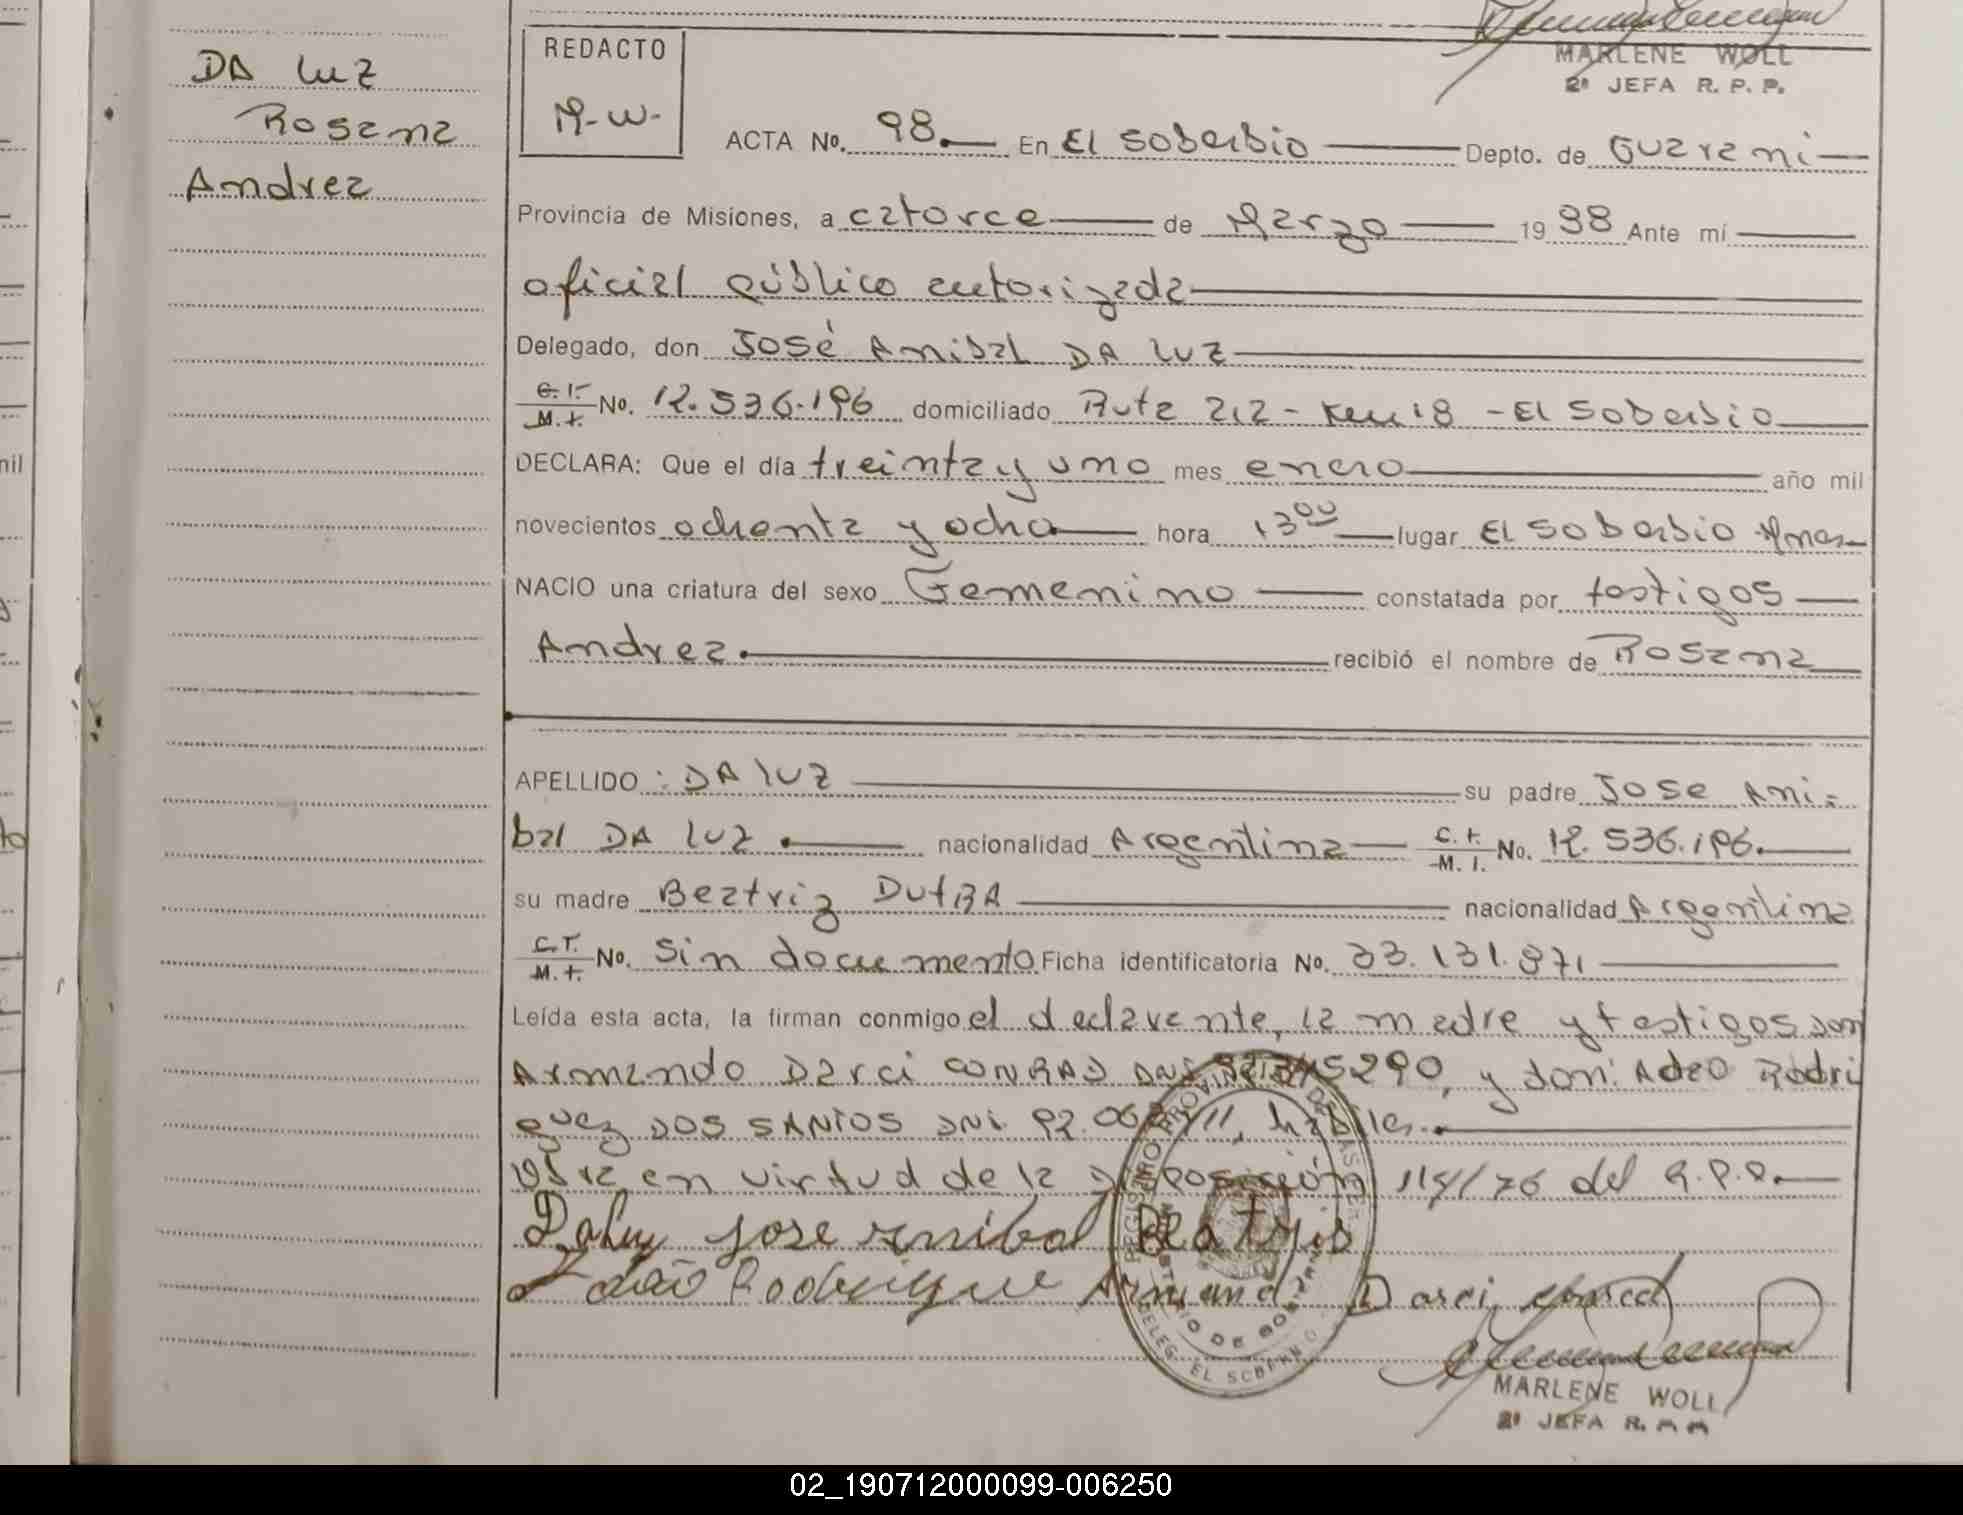 MARLENE WOLL
2ª JEFA R. P. P.
DA LUZ
Rosana
Andrea
REDACTO
M-W-
ACTA No. 98. En El Soberbio Depto. de Guarani
Provincia de Misiones, a catorce de Marzo 1988 Ante mí
oficial público autorizada
Delegado, don José Anibal DA LUZ
C.I. M.I. No. 12.536.196 domiciliado Ruta 212 - Km 18 - El Soberbio
DECLARA: Que el día treinta y uno mes enero año mil
novecientos ochenta y ocho hora 13 00 lugar El Soberbio Mnes
NACIO una criatura del sexo Femenino constatada por testigos
Andrea. recibió el nombre de Rosana
APELLIDO : DA LUZ su padre Jose Ani-
bal DA LUZ. nacionalidad Argentina C.I. M.I. No. 12.536.196.
su madre Beatriz DutRA nacionalidad Argentina
C.I. M.I. No. Sin documento Ficha identificatoria No. 33.131.871
Leída esta acta, la firman conmigo el declarante, la madre y testigos don
Armando Darci CONRAD DNI y don: Adao Rodri
guez DOS SANTOS DNI hábiles.
Obra en virtud de la disposición 114/76 del R.P.P.
Daluz jose annibal Beatris
João Rodrigue Armand Darci
DELEG. EL SOBERBIO
MARLENE WOLL
2ª JEFA R.
nil
to
02_190712000099-006250